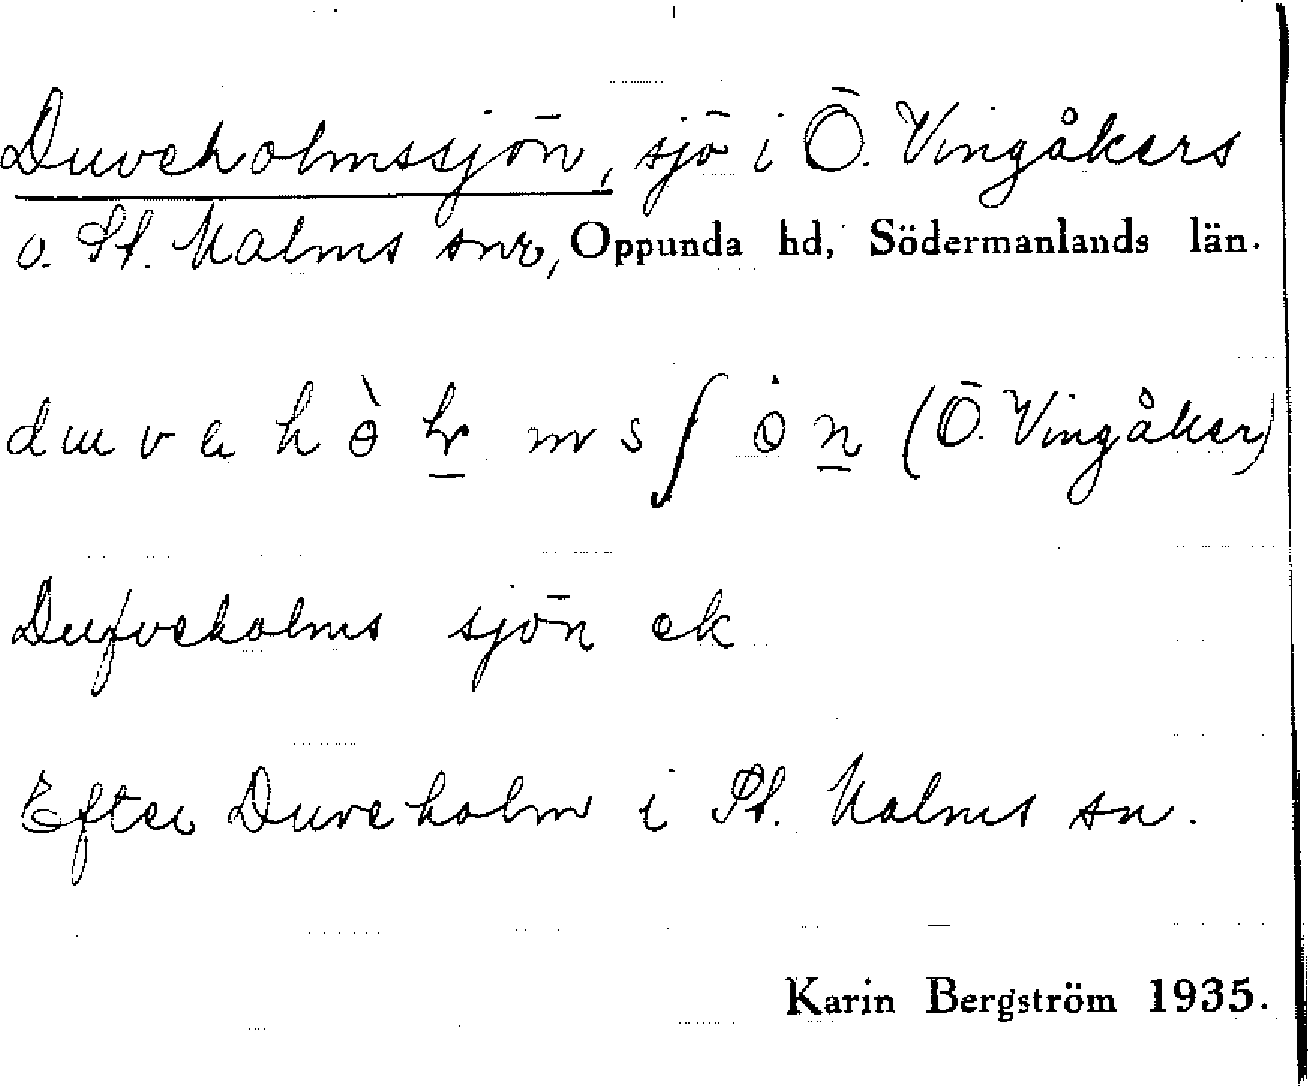 Duveholmssjön, sjö i Ö. Vingåkers
o. St. Malms snr, Oppunda hd, Södermanlands län.
(Ö. Vingåker)
Dufveholms sjön ek
Efter Duveholm i St. Malms sn.
Karin Bergström 1935.